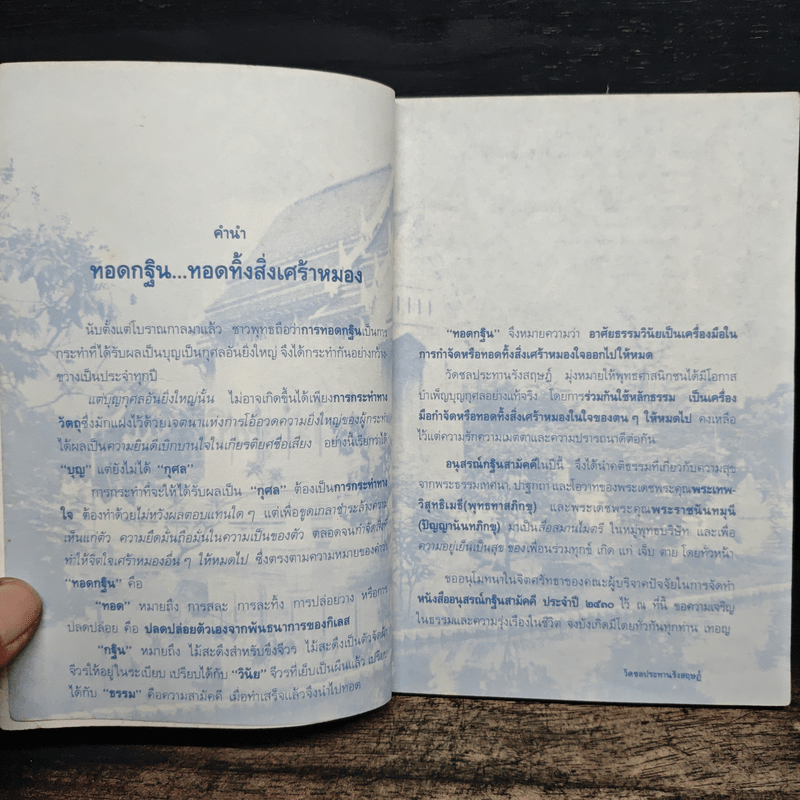 คำนำ
ทอดกฐิน...ทอดทิ้งสิ่งเศร้าหมอง
นับตั้งแต่โบราณกาลมาแล้ว ชาวพุทธถือว่าการทอดกฐินเป็นการ
กระทำที่ได้รับผลเป็นบุญเป็นกุศลอันยิ่งใหญ่ จึงได้กระทำกันอย่างกว้าง
ขวางเป็นประจำทุกปี
แต่บุญกุศลอันยิ่งใหญ่นั้น ไม่อาจเกิดขึ้นได้เพียงการกระทำทาง
วัตถุซึ่งมักแฝงไว้ด้วยเจตนาแห่งการโอ้อวดความยิ่งใหญ่ของผู้กระทำ
ได้ผลเป็นความยินดีเบิกบานใจในเกียรติยศชื่อเสียง อย่างนี้เรียกว่าได้
“บุญ” แต่ยังไม่ได้ “กุศล”
การกระทำที่จะให้ได้รับผลเป็น “กุศล” ต้องเป็นการกระทำทาง
ใจ ต้องทำด้วยไม่หวังผลตอบแทนใด ๆ แต่เพื่อขูดเกลาชำระล้างความ
เห็นแก่ตัว ความยึดมั่นถือมั่นในความเป็นของตัว ตลอดจนกำจัดสิ่งที่
ทำให้จิตใจเศร้าหมองอื่น ๆ ให้หมดไป ซึ่งตรงตามความหมายของคำว่า
“ทอดกฐิน” คือ
“ทอด” หมายถึง การสละ การละทิ้ง การปล่อยวาง หรือการ
ปลดปล่อย คือ ปลดปล่อยตัวเองจากพันธนาการของกิเลส
“กฐิน” หมายถึง ไม้สะดึงสำหรับขึงจีวร ไม้สะดึงเป็นตัวจัดผ้า
จีวรให้อยู่ในระเบียบ เปรียบได้กับ “วินัย” จีวรที่เย็บเป็นผืนแล้ว เปรียบ
ได้กับ “ธรรม” คือความสามัคคี เมื่อทำเสร็จแล้วจึงนำไปทอด
“ทอดกฐิน” จึงหมายความว่า อาศัยธรรมวินัยเป็นเครื่องมือใน
การกำจัดหรือทอดทิ้งสิ่งเศร้าหมองใจออกไปให้หมด
วัดชลประทานรังสฤษฎ์ มุ่งหมายให้พุทธศาสนิกชนได้มีโอกาส
บำเพ็ญบุญกุศลอย่างแท้จริง โดยการร่วมกันใช้หลักธรรม เป็นเครื่อง
มือกำจัดหรือทอดทิ้งสิ่งเศร้าหมองในใจของตน ๆ ให้หมดไป คงเหลือ
ไว้แต่ความรักความเมตตาและความปรารถนาดีต่อกัน
อนุสรณ์กฐินสามัคคีในปีนี้ จึงได้นำคติธรรมที่เกี่ยวกับความสุข
จากพระธรรมเทศนา ปาฐกถา และโอวาทของพระเดชพระคุณพระเทพ-
วิสุทธิเมธี(พุทธทาสภิกขุ) และพระเดชพระคุณพระราชนันทมุนี
(ปัญญานันทภิกขุ) มาเป็นสื่อสมานไมตรี ในหมู่พุทธบริษัท และเพื่อ
ความอยู่เย็นเป็นสุข ของเพื่อนร่วมทุกข์ เกิด แก่ เจ็บ ตาย โดยทั่วหน้า
ขออนุโมทนาในจิตศรัทธาของคณะผู้บริจาคปัจจัยในการจัดทำ
หนังสืออนุสรณ์กฐินสามัคคี ประจำปี ๒๕๓๐ ไว้ ณ ที่นี้ ขอความเจริญ
ในธรรมและความรุ่งเรืองในชีวิต จงบังเกิดมีโดยทั่วกันทุกท่าน เทอญ
วัดชลประทานรังสฤษฎ์